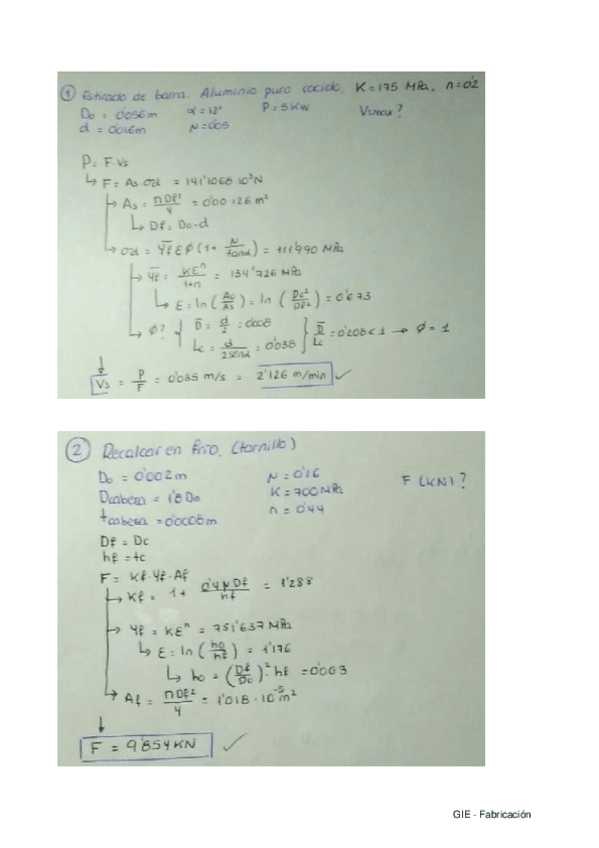 ① Estirado de barra. Aluminio puro cocido. K=175 MPa, n=0'2
D₀ = 0'056m α=12° P=5KW Vsmax?
d = 0'016m μ=0'05
P = F·Vs
↳ F = As·σd = 141'1068·10³N
↳ As = πDf²/4 = 0'00126 m²
↳ Df = Do-d
↳ σd = Ȳf ε φ (1+ μ/tanα) = 111'990 MPa
↳ Ȳf = Kεⁿ/1+n = 134'726 MPa
↳ ε = ln (Ao/As) = ln (Do²/Df²) = 0'673
↳ φ? { D̄ = d/2 = 0'008
Lc = d/2senα = 0'038 } D̄/Lc = 0'208<1 → φ = 1
Vs = P/F = 0'035 m/s = 2'126 m/min ✓
② Recalcar en frío. (tornillo)
D₀ = 0'002m μ = 0'16 F (KN)?
Dcabeza = 1'8 Do K = 700 MPa
tcabeza = 0'0008m n = 0'44
Df = Dc
hf = tc
F = Kf·Yf·Af
↳ Kf = 1+ 0'4μDf/hf = 1'288
↳ Yf = Kεⁿ = 751'637 MPa
↳ ε = ln (ho/hf) = 1'176
↳ ho = (Df/Do)²·hf = 0'003
↳ Af = πDf²/4 = 1'018·10⁻⁵m²
F = 9'854KN ✓
GIE - Fabricación